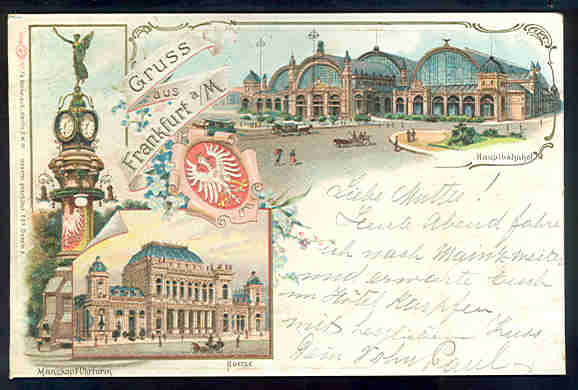 Gruss
aus
Frankfurt a/M
Hauptbahnhof
Liebe Mutter!
Heute Abend fahre
ich nach Mainz weiter
und erwarte Euch
im Hôtel Karpfen,
mit herzlichem Kuss
Dein Sohn Paul
Börse
Manskopf'Uhrturm